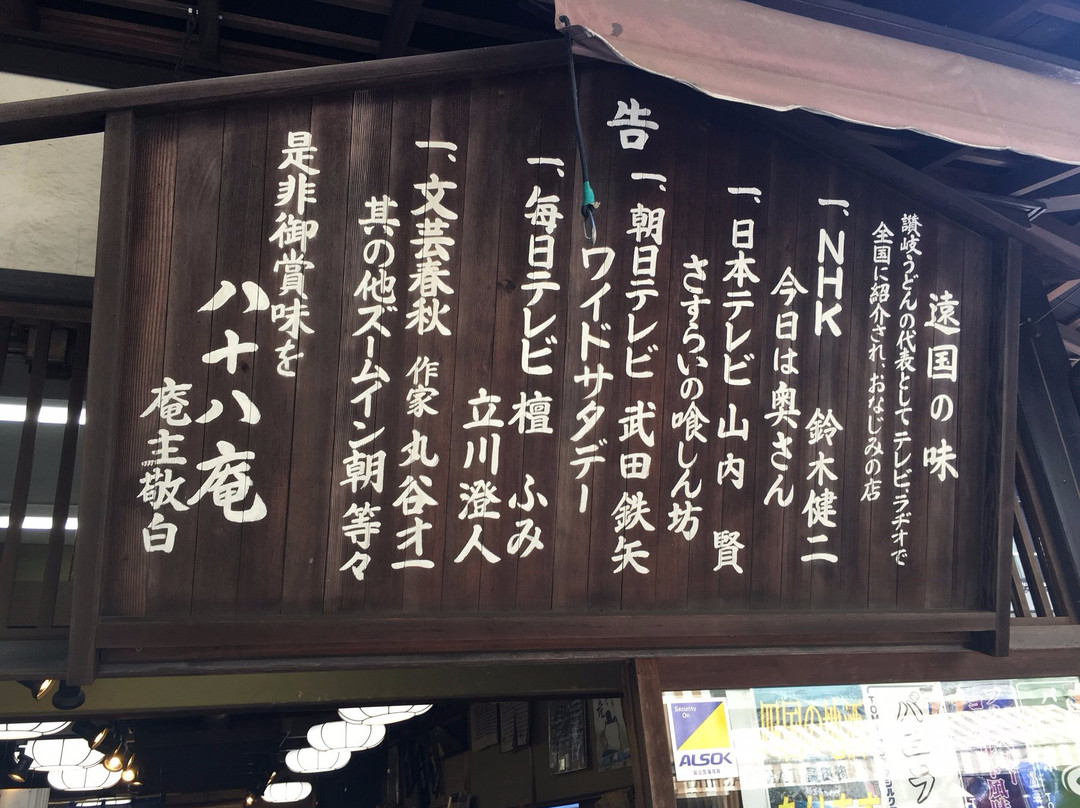 告
遠国の味
讃岐うどんの代表としてテレビ、ラヂオで
全国に紹介され、おなじみの店
一、NHK 鈴木健二
今日は奥さん
一、日本テレビ 山内 賢
さすらいの喰しん坊
一、朝日テレビ 武田鉄矢
ワイドサタデー
一、毎日テレビ 檀 ふみ
立川澄人
一、文芸春秋 作家 丸谷オ一
其の他ズームイン朝 等々
是非御賞味を
八十八庵
庵主敬白
Security
On
ALSOK